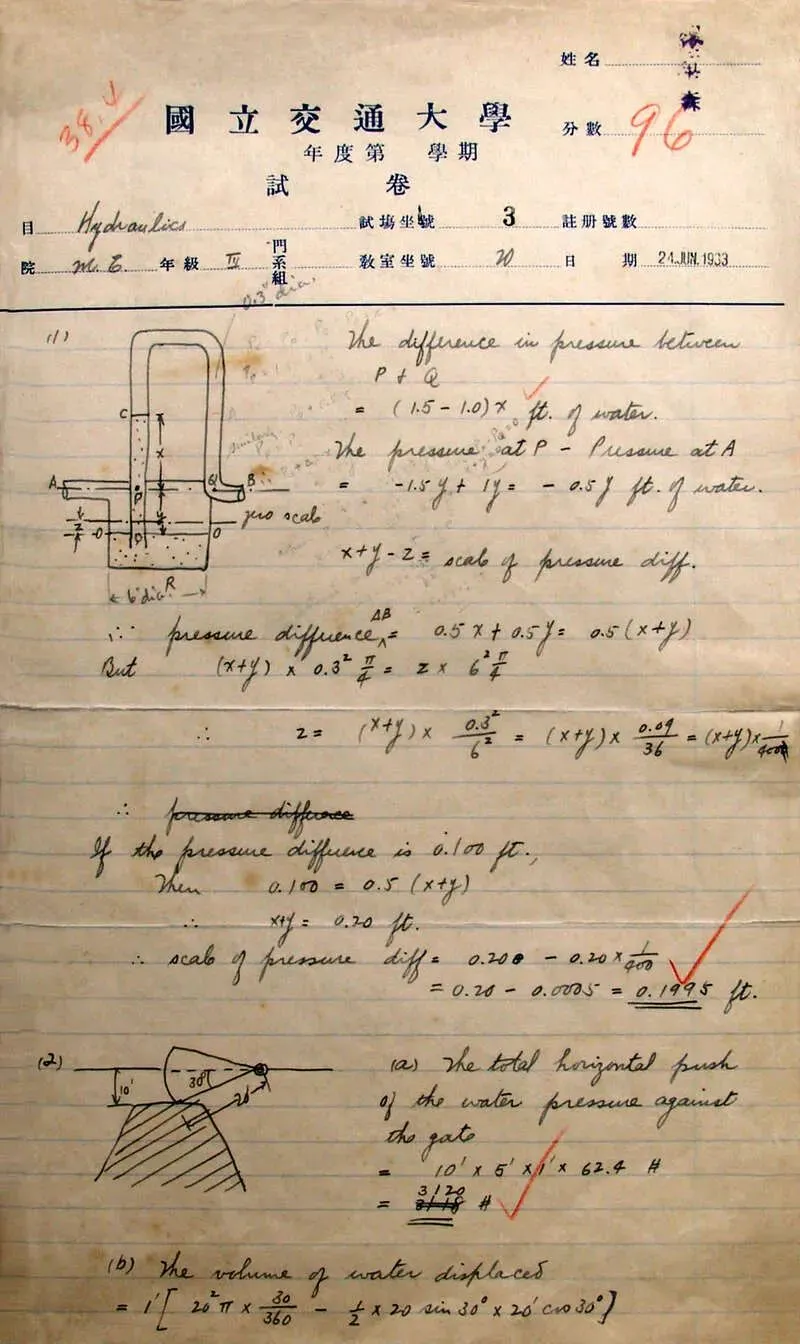 姓名
38.
國立交通大學
分數 96
年度第 學期
試卷
目 Hydraulics 試場坐號 3 註册號數
院 M.E. 年級 III 門系組 教室坐號 20 日期 24.JUN.1933
0.3" dia.
(1)
The difference in pressure between
P + Q
= (1.5 - 1.0)x ft. of water.
The pressure at P - Pressure at A
= -1.5y + 1y = - 0.5y ft. of water.
x+y-z = scale of pressure diff.
C
x
A
P
Q
B
zero scale
y
z
O
O
R
6" dia.
∴ pressure difference AB = 0.5x + 0.5y = 0.5(x+y)
But (x+y) x 0.3² π/4 = z x 6² π/4
∴ z = (x+y) x 0.3²/6² = (x+y) x 0.09/36 = (x+y) x 1/400
∴ pressure difference
If the pressure difference is 0.100 ft.,
Then 0.100 = 0.5 (x+y)
∴ x+y = 0.20 ft.
∴ scale of pressure diff = 0.200 - 0.20 x 1/400
= 0.20 - 0.0005 = 0.1995 ft.
(2)
30°
10'
20'
(a) The total horizontal push
of the water pressure against
the gate
= 10' x 5' x 1' x 62.4 #
= 3120 #
(b) The volume of water displaced
= 1'[ 20² π x 30/360 - 1/2 x 20 sin 30° x 20' cos 30°]